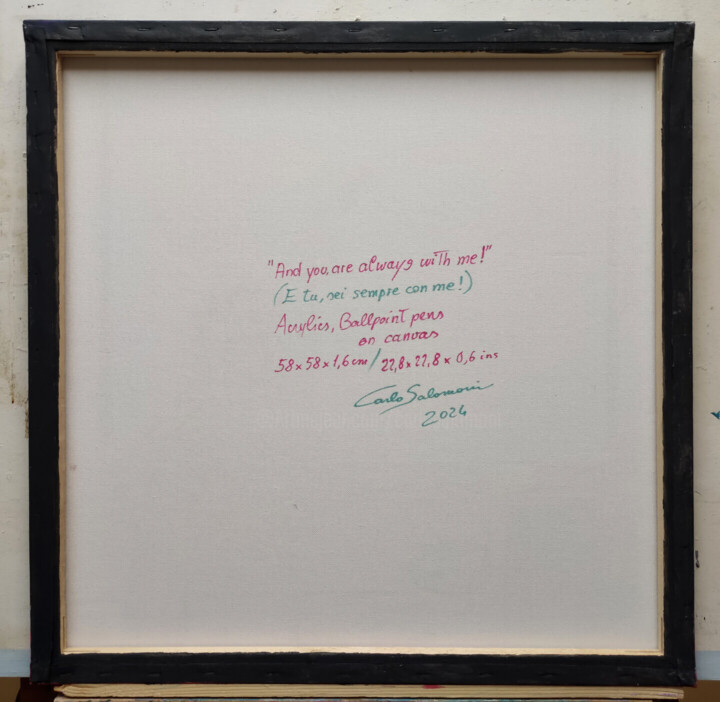 "And you, are always with me!"
(E tu, sei sempre con me!)
Acrylics, Ballpoint pens
on canvas
58 x 58 x 1,6 cm / 22,8 x 22,8 x 0,6 ins
Carlo Salomoni
2024